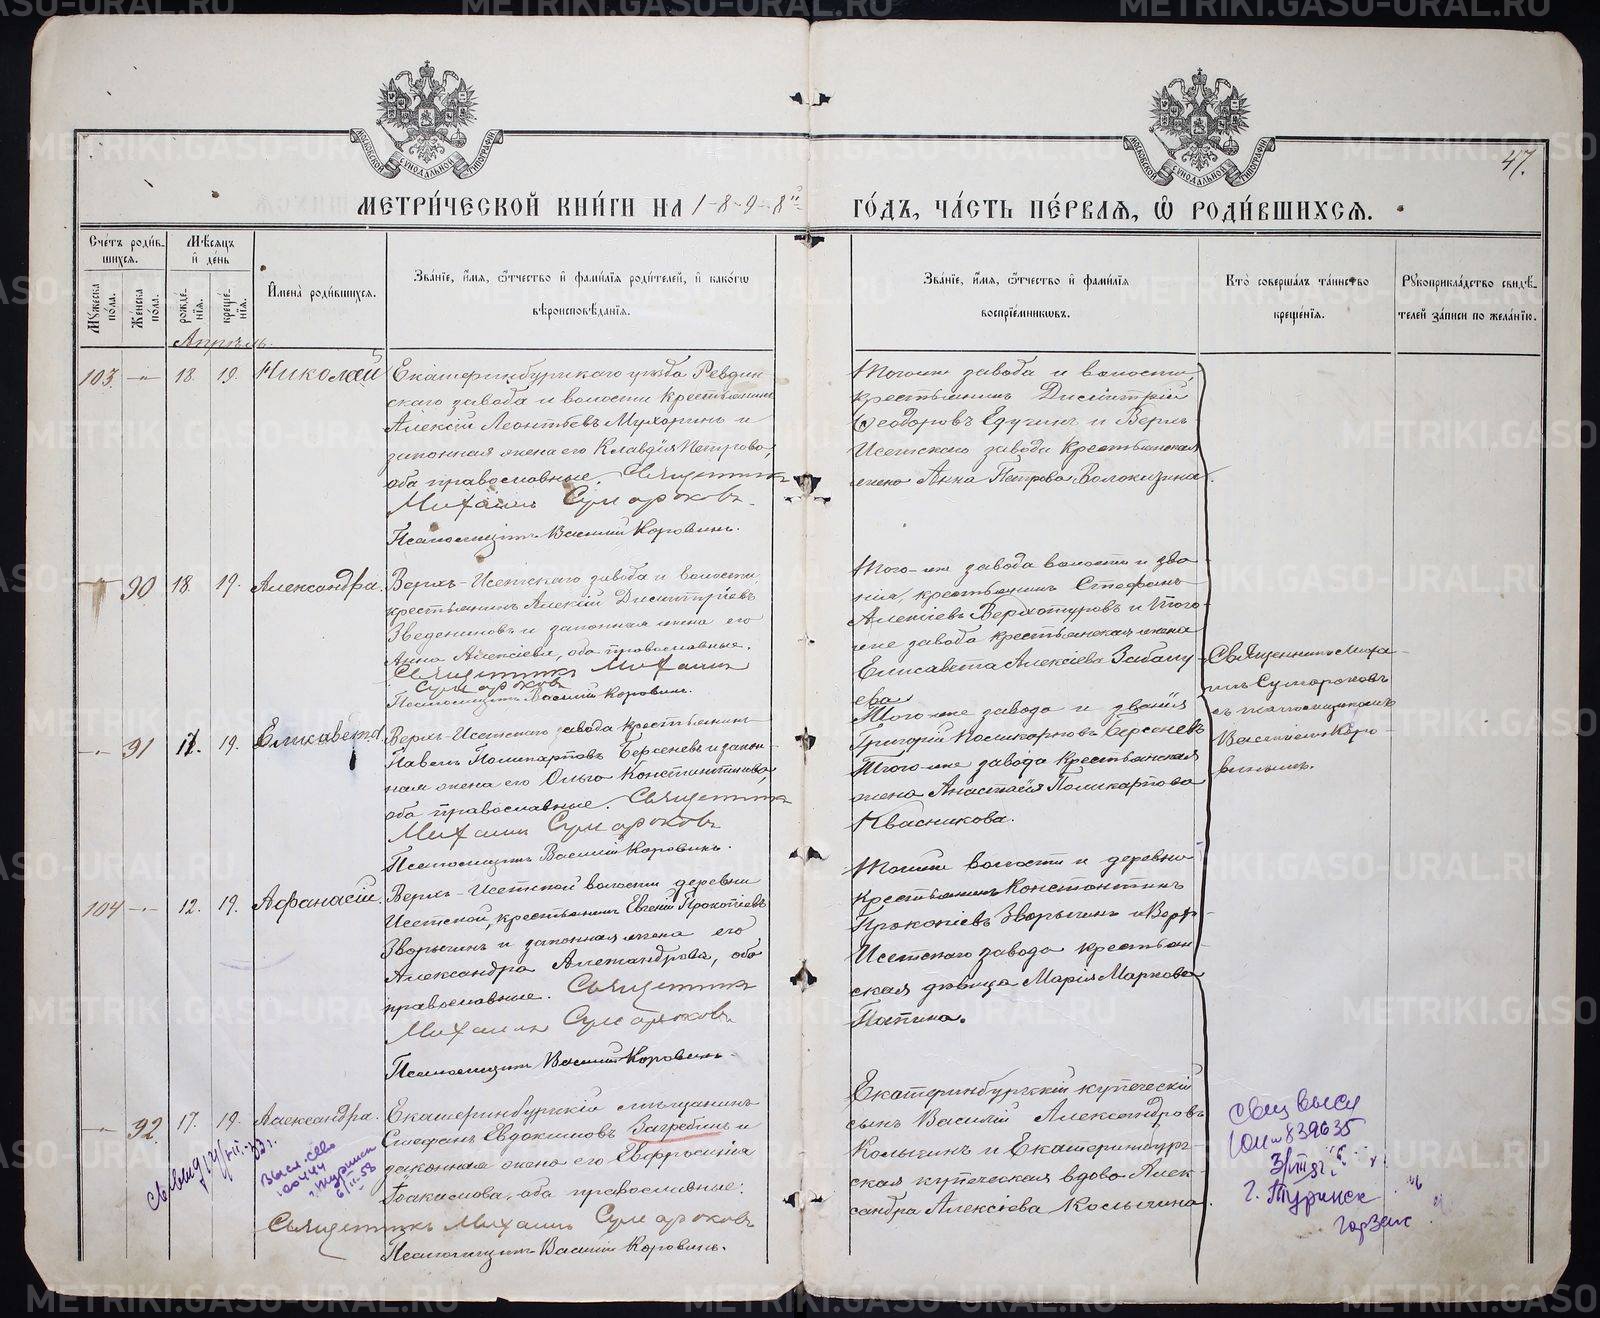 47.
МЕТРИ́ЧЕСКОЙ КНИ́ГИ НА 1898й
ГО́ДЪ, ЧА́СТЬ ПЕ́РВАЯ, Ѽ РОДИ́ВШИХСЯ.
Сче́тъ роди́в-
шихся.
Му́жеска по́ла.
Же́нска по́ла.
Мѣ́сяцъ и де́нь
рожде́-
нїя.
креще́-
нїя.
И҆мена̀ роди́вшихся.
Зва́нїе, и҆́мя, ѻ҆́тчество и҆ фами́лїя роди́телей, и҆ како́гѡ
вѣроисповѣ́данїя.
Зва́нїе, и҆́мя, ѻ҆́тчество и҆ фами́лїя
воспрїе́мниковъ.
Кто̀ соверша́лъ та́инство
креще́нїя.
Рукоприкла́дство свидѣ́-
телей за́писи по жела́нїю.
Апрѣль.
103. 18. 19. Николай
Екатеринбургскаго уѣзда Ревдин-
скаго завода и волости крестьянинъ
Алексій Леонтьевъ Мухоринъ и
законная жена его Клавдія Петрова,
оба православные. Священникъ
Михаилъ Сумароковъ
Псаломщикъ Василій Коровинъ.
Того-же завода и волости
крестьянинъ Димитрій
Ѳеодоровъ Едугинъ и Верхъ
Исетскаго завода крестьянская
жена Анна Петрова Волокизина.
90. 18. 19. Александра.
Верхъ-Исетскаго завода и волости,
крестьянинъ Алексій Димитріевъ
Зведениновъ и законная жена его
Анна Алексіева, оба православные.
Священникъ Михаилъ
Сумароковъ
Псаломщикъ Василій Коровинъ.
Того-же завода волости и зва-
нія, крестьянинъ Стефанъ
Алексіевъ Верхотуровъ и того-
же завода крестьянская жена
Елисавета Алексіева Забалу-
ева.
91 19. Елисавета.
Верхъ-Исетскаго завода крестьянинъ
Павелъ Поликарповъ Берсеневъ и закон-
ная жена его Ольга Константинова,
оба православные. Священникъ
Михаилъ Сумароковъ
Псаломщикъ Василій Коровинъ.
Того-же завода и званія
Григорій Поликарповъ Берсеневъ
Того-же завода крестьянская
жена Анастасія Поликарпова
Квасникова.
104 12. 19. Аѳанасій.
Верхъ-Исетской волости деревни
Исетской, крестьянинъ Евгеній Прокопіевъ
Зворыгинъ и законная жена его
Александра Александрова, оба
православные. Священникъ
Михаилъ Сумароковъ
Псаломщикъ Василій Коровинъ.
Той же волости и деревни
крестьянинъ Константинъ
Прокопіевъ Зворыгинъ и Верхъ-
Исетскаго завода крестьян-
ская дѣвица Марія Маркова
Папина.
92. 17. 19. Александра.
Екатеринбургскій мѣщанинъ
Стефанъ Евдокимовъ Загребинъ и
законная жена его Евфросинія
Іоакимова, оба православные.
Священникъ Михаилъ Сумароковъ
Псаломщикъ Василій Коровинъ.
Екатеринбургскій купеческій
сынъ Василій Александровъ
Колыгинъ и Екатеринбург-
ская купеческая вдова Алек-
сандра Алексіева Колыгина.
Священникъ Миха-
илъ Сумароковъ
съ псаломщикомъ
Василіемъ Коро-
винымъ.
г. Туринск